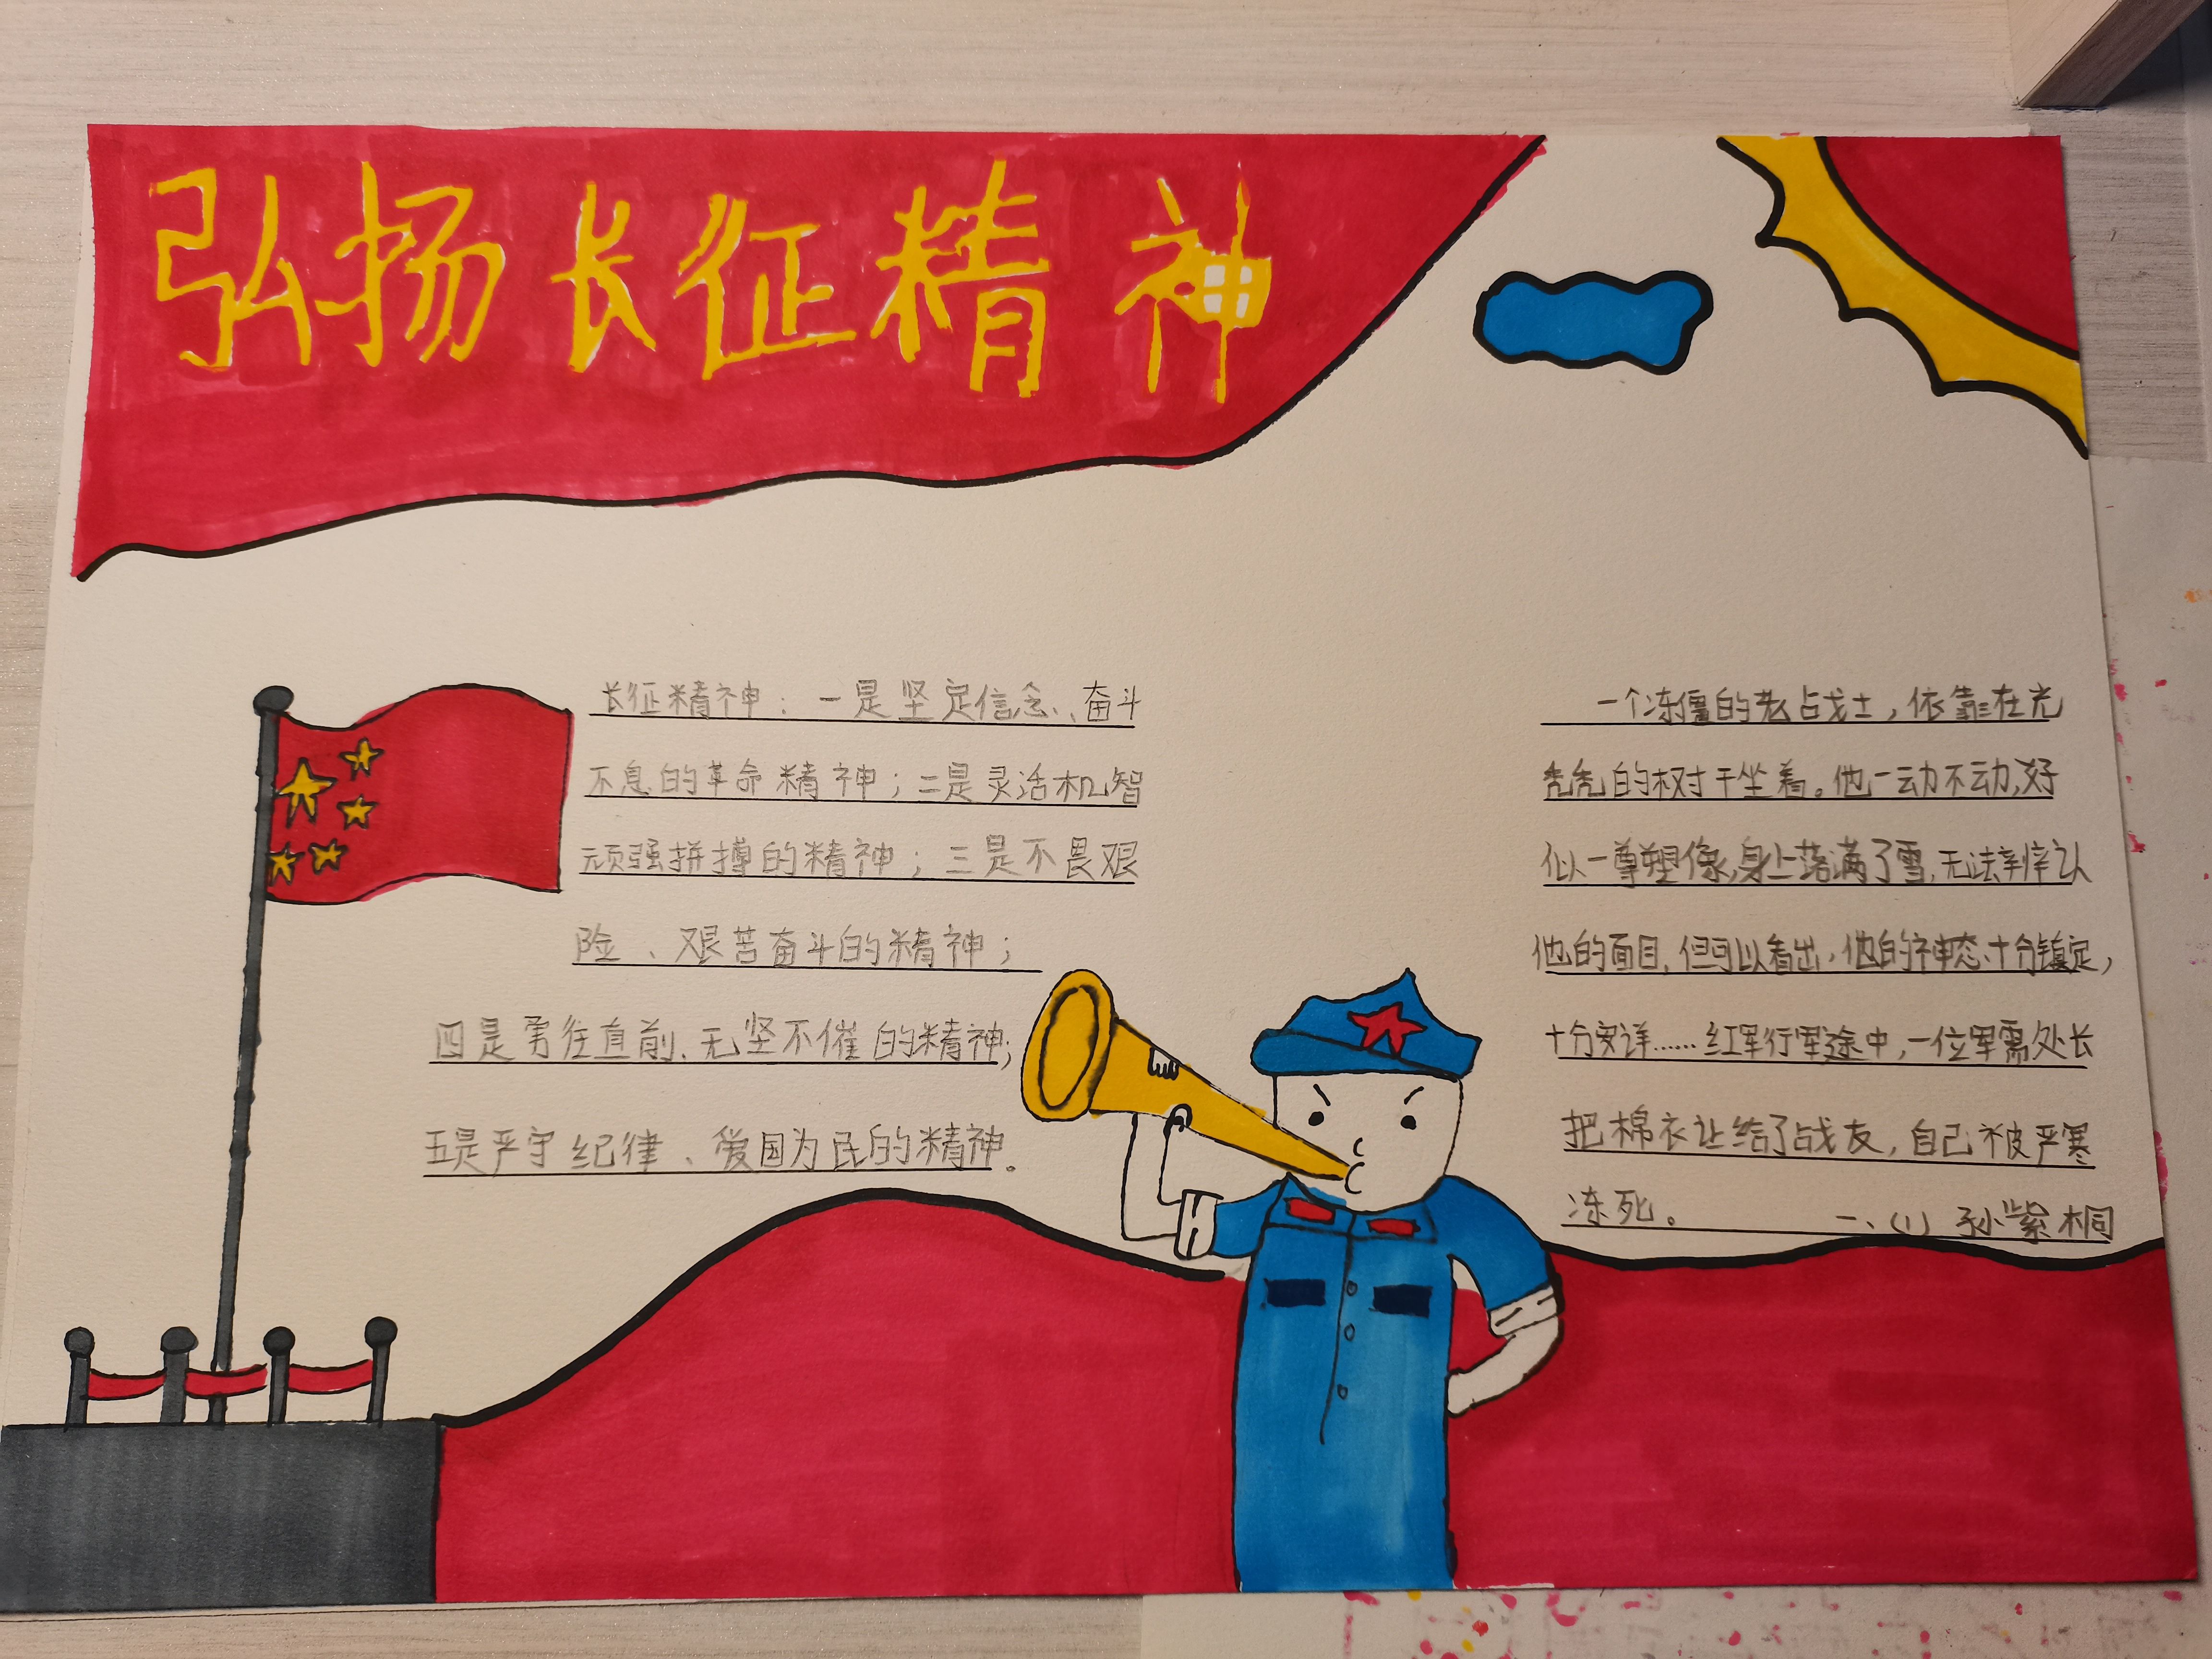 弘扬长征精神
长征精神：一是坚定信念、奋斗
不息的革命精神；二是灵活机智
顽强拼搏的精神；三是不畏艰
险、艰苦奋斗的精神；
四是勇往直前、无坚不催的精神；
五是严守纪律、爱国为民的精神。
一个冻僵的老战士，依靠在光
秃秃的树干坐着。他一动不动，好
似一尊塑像，身上落满了雪，无法辨认
他的面目，但可以看出，他的神态十分镇定，
十分安详……红军行军途中，一位军需处长
把棉衣让给了战友，自己被严寒
冻死。
一、（1） 孙紫桐